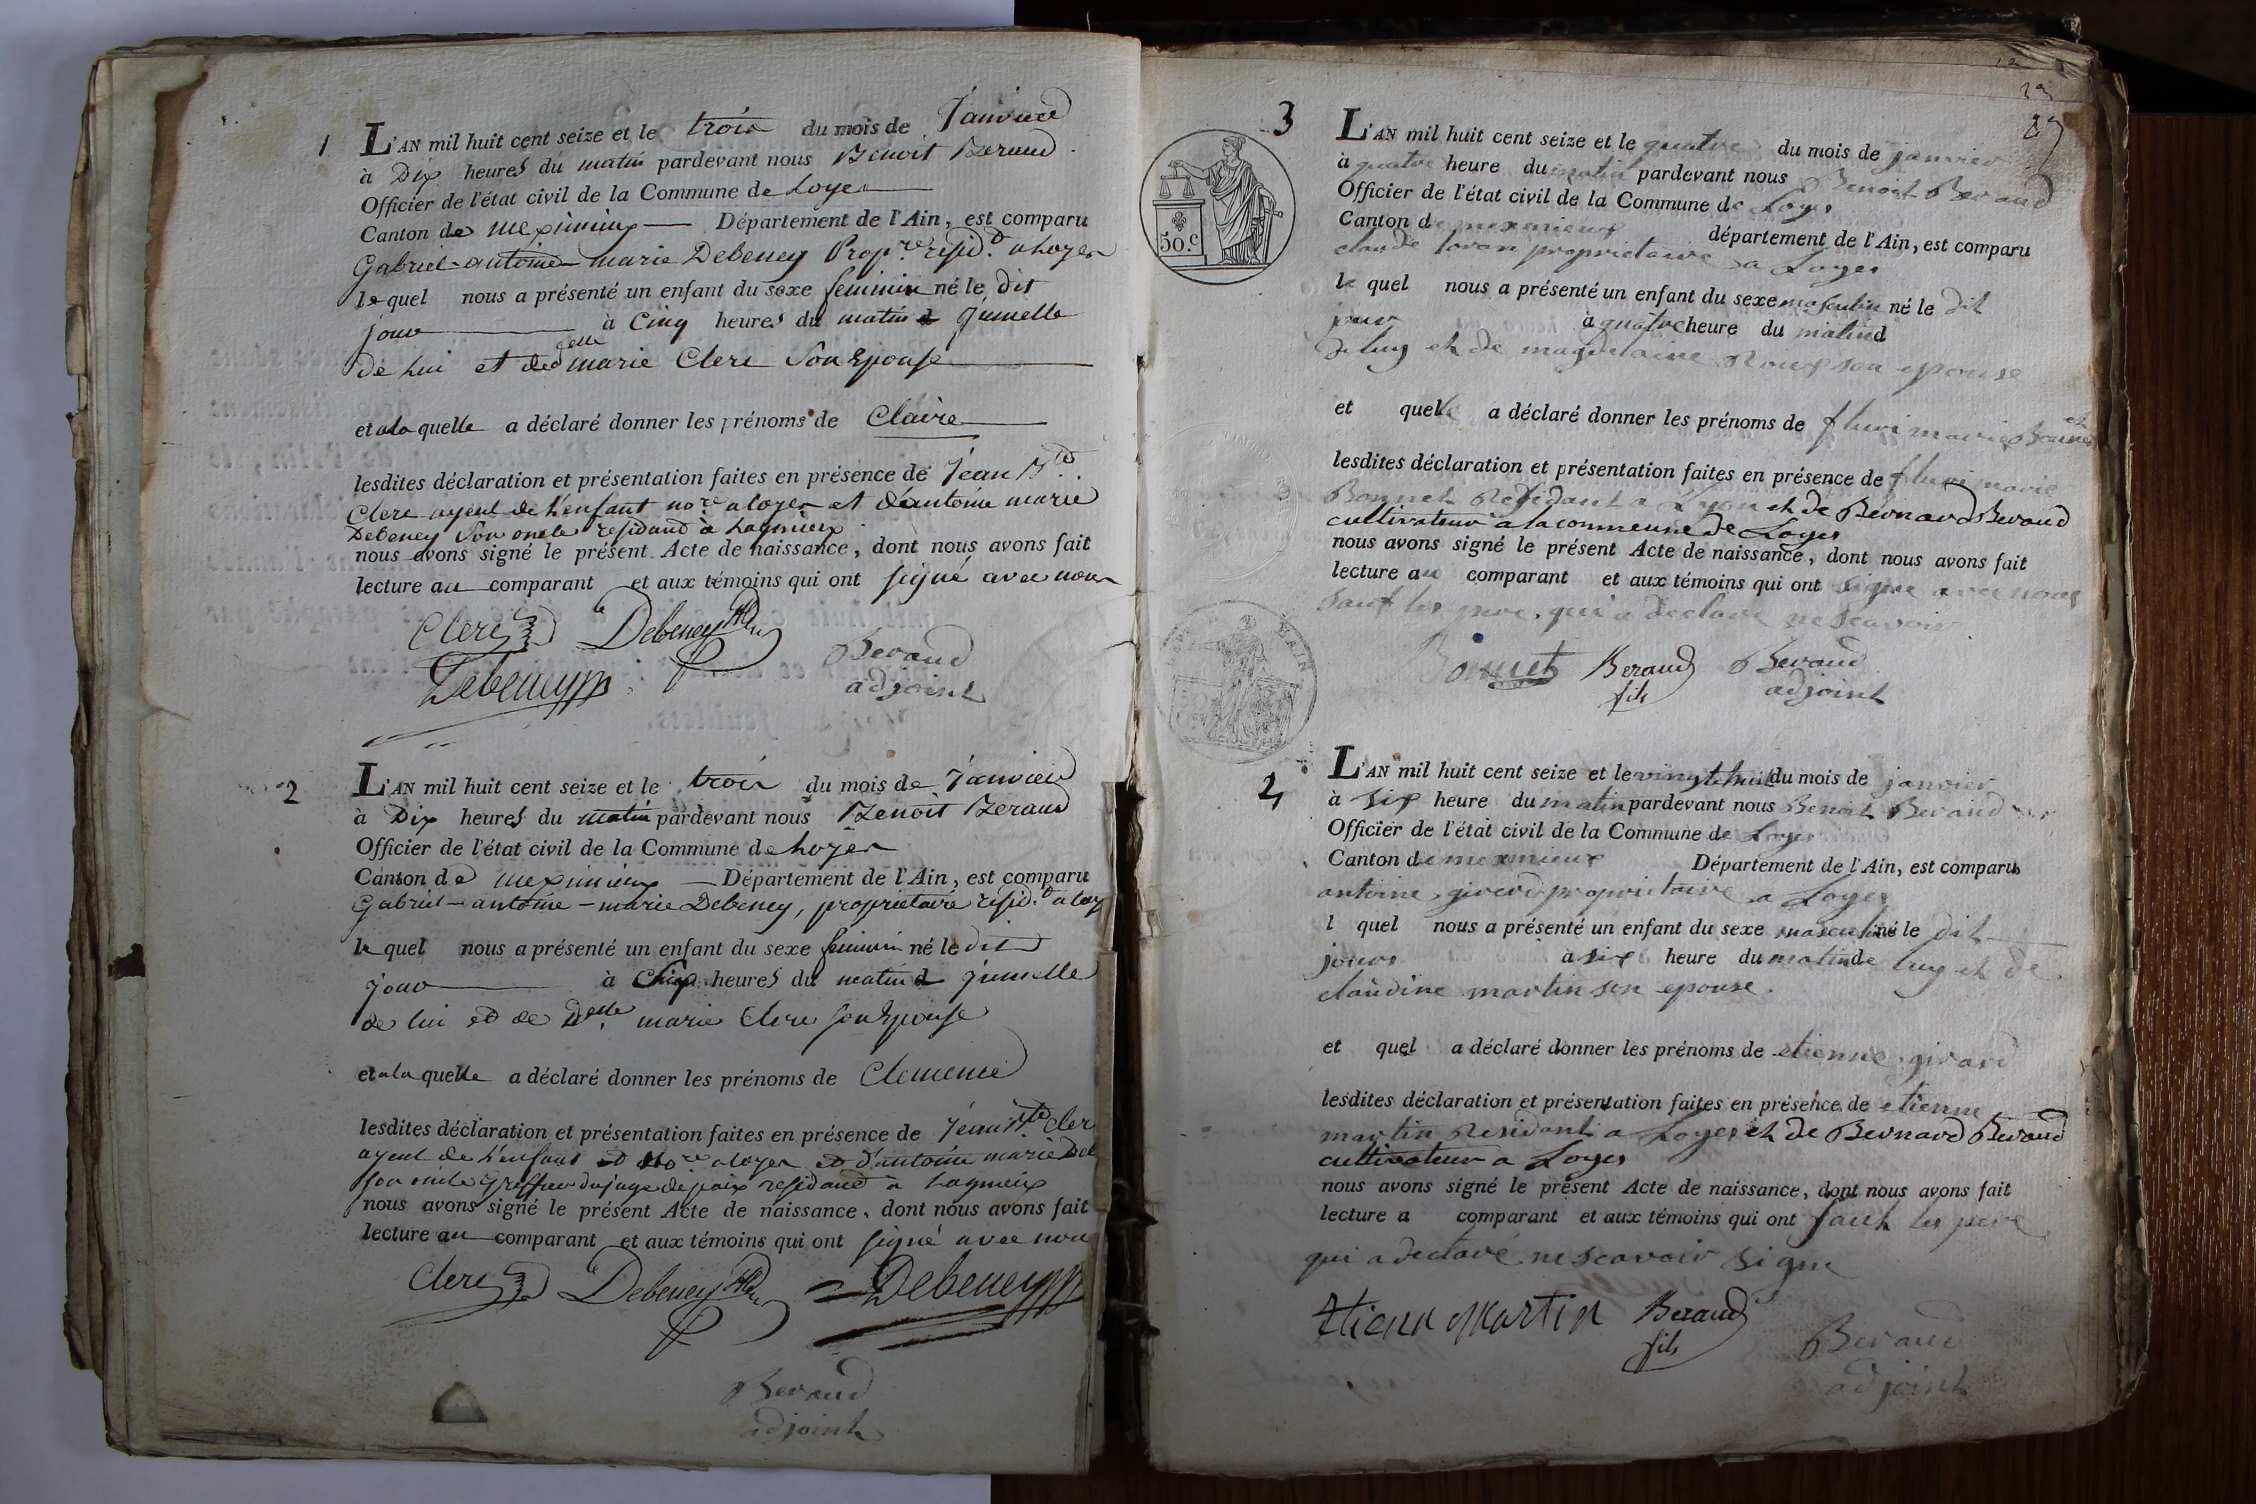 1
L'AN mil huit cent seize et le trois du mois de Janvier
à Dix heures du matin pardevant nous Benoit Beraud
Officier de l'état civil de la Commune de Loyes
Canton de meximieux Département de l'Ain, est comparu
Gabriel-antoine-marie Debeney Prop.re résid.t a Loyes
lequel nous a présenté un enfant du sexe feminin né le dit
jour à Cinq heures du matin jumelle
de Lui et de delle marie Clerc Son Epouse
et a la quelle a déclaré donner les prénoms de Claire
lesdites déclaration et présentation faites en présence de Jean B.te
Clerc ayeul de l'enfant no.re a loyes et d'antoine marie
Debeney Son oncle residand à Lagnieux
nous avons signé le présent Acte de naissance, dont nous avons fait
lecture au comparant et aux témoins qui ont signé avec nous
Clerc Debeney
Debeney
Beraud
adjoint
2
L'AN mil huit cent seize et le trois du mois de Janvier
à Dix heures du matin pardevant nous Benoit Beraud
Officier de l'état civil de la Commune de Loyes
Canton de meximieux Département de l'Ain, est comparu
Gabriel-antoine-marie Debeney, propriétaire résid.t a loy
le quel nous a présenté un enfant du sexe feminin né le dit
jour à Cinq heures du matin jumelle
de lui et de Delle marie Clerc son Epouse
et a la quelle a déclaré donner les prénoms de Clemence
lesdites déclaration et présentation faites en présence de Jean B.te Cler
ayeul de l'enfant et no.re a loyes et d'antoine marie Deb
son oncle Greffier du juge de paix residand a Lagnieux
nous avons signé le présent Acte de naissance, dont nous avons fait
lecture au comparant et aux témoins qui ont signé avec nou
Clerc Debeney Debeney
Beraud
adjoint
3
50.c
L'AN mil huit cent seize et le quatre du mois de janvier
à quatre heure du matin pardevant nous Benoit Beraud
Officier de l'état civil de la Commune de Loyes
Canton de meximieux département de l'Ain, est comparu
claude propriétaire a Loyes
le quel nous a présenté un enfant du sexe masculin né le dit
jour à quatre heure du matin d
de luy et de magdelaine Roux son epouse
et quel a déclaré donner les prénoms de fluri marie
lesdites déclaration et présentation faites en présence de fluri marie
Bonnet Residant a Lyon et de Bernard Beraud
cultivateur a la commune de Loyes
nous avons signé le présent Acte de naissance, dont nous avons fait
lecture au comparant et aux témoins qui ont signe avec nous
sauf les pere, qui a declare ne scavoir
Bonnet Beraud fils Beraud
adjoint
AIN
4
L'AN mil huit cent seize et le vingt huit du mois de janvier
à six heure du matin pardevant nous Benoit Beraud
Officier de l'état civil de la Commune de Loyes
Canton de meximieux Département de l'Ain, est comparu
antoine girerd propriétaire a Loyes
l quel nous a présenté un enfant du sexe masculin né le dit
jour à six heure du matin de luy et de
claudine martin son epouse.
et quel a déclaré donner les prénoms de etienne girard
lesdites déclaration et présentation faites en présence de etienne
martin Residant a Loyes et de Bernard Beraud
cultivateur a Loyes
nous avons signé le présent Acte de naissance, dont nous avons fait
lecture a comparant et aux témoins qui ont sauf les pere
qui a declaré ne scavoir signe
Etienne Martin Beraud fils
Beraud
adjoint